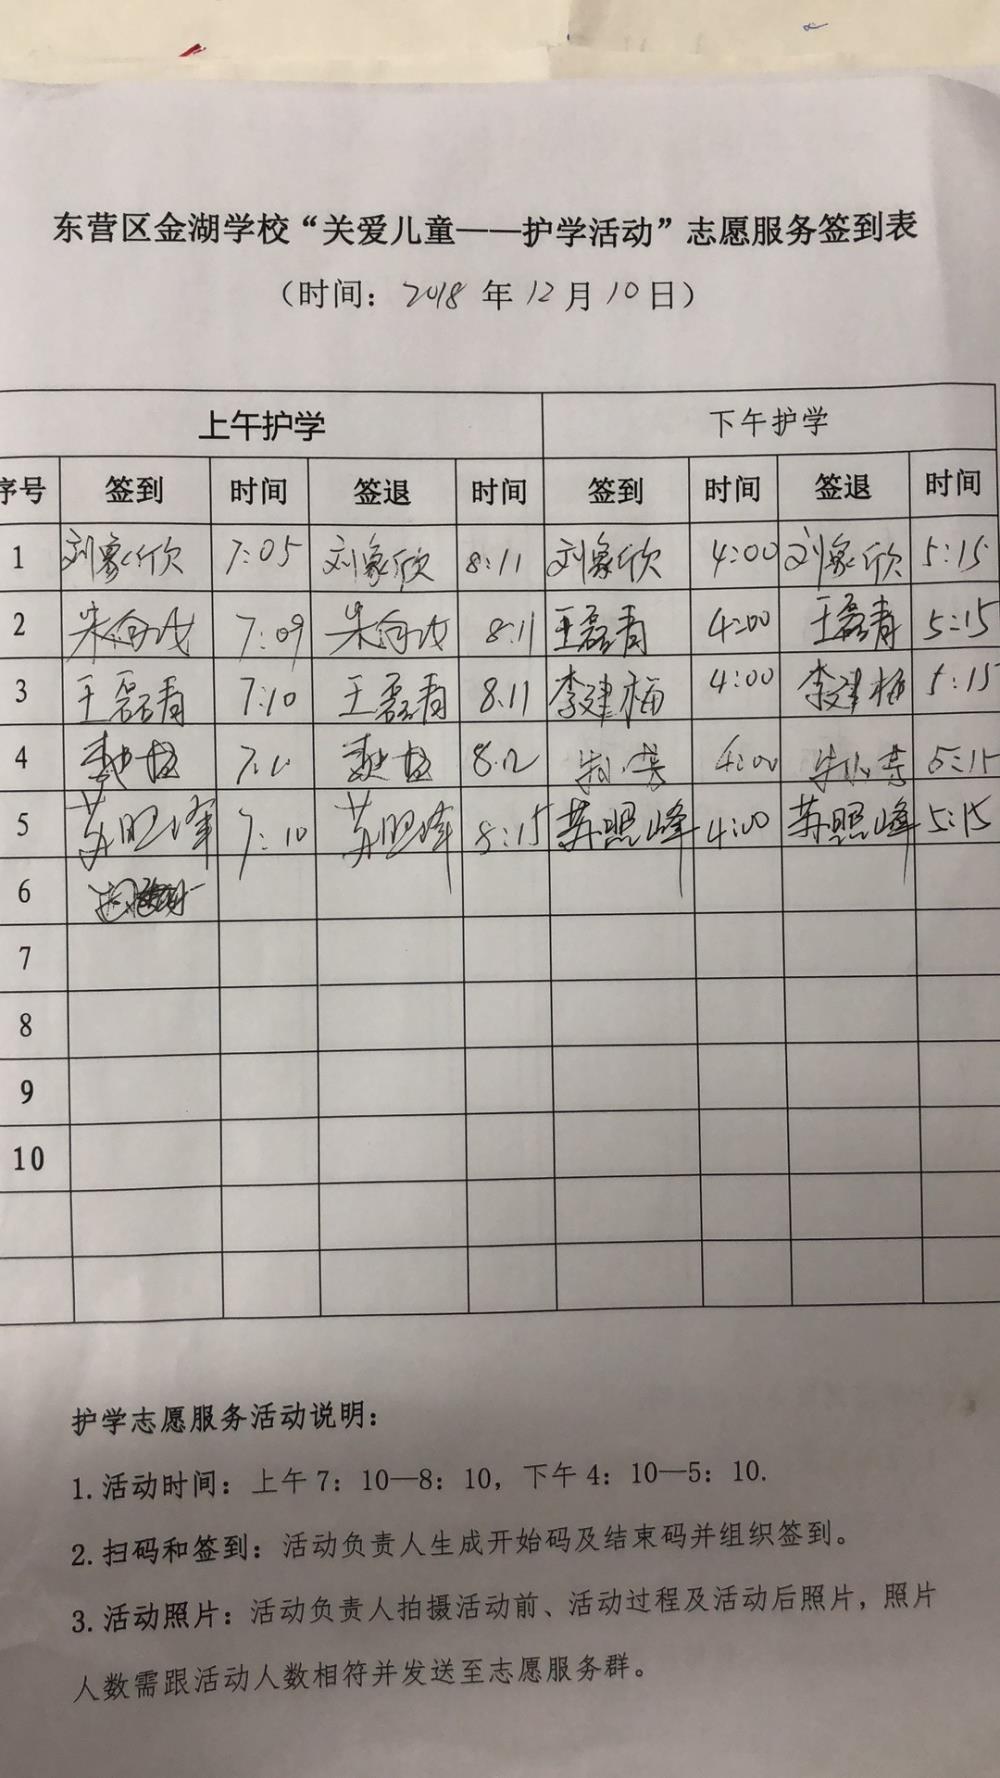 东营区金湖学校“关爱儿童——护学活动”志愿服务签到表
（时间：2018年12月10日）
上午护学 下午护学
序号 签到 时间 签退 时间 签到 时间 签退 时间
1 刘象欣 7:05 刘象欣 8:11 刘象欣 4:00 刘象欣 5:15
2 7:09 8:11 王磊青 4:00 王磊青 5:15
3 王磊青 7:10 王磊青 8:11 李建梅 4:00 李建梅 5:15
4 8:12 4:00 5:15
5 苏照峰 7:10 苏照峰 8:15 苏照峰 4:00 苏照峰 5:15
6
7
8
9
10
护学志愿服务活动说明：
1.活动时间：上午7：10—8：10，下午4：10—5：10.
2.扫码和签到：活动负责人生成开始码及结束码并组织签到。
3.活动照片：活动负责人拍摄活动前、活动过程及活动后照片，照片
人数需跟活动人数相符并发送至志愿服务群。